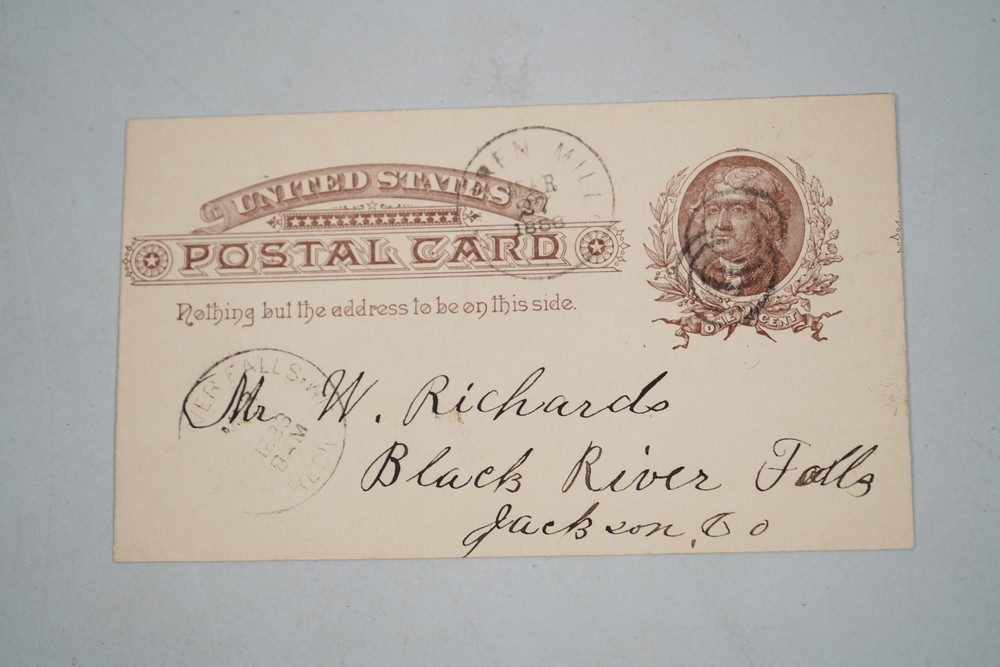 UNITED STATES
POSTAL CARD
Nothing but the address to be on this side.
MAR
1888
ONE CENT
ER FALLS. WIS
Mr W. Richards
Black River Falls
Jackson, Co